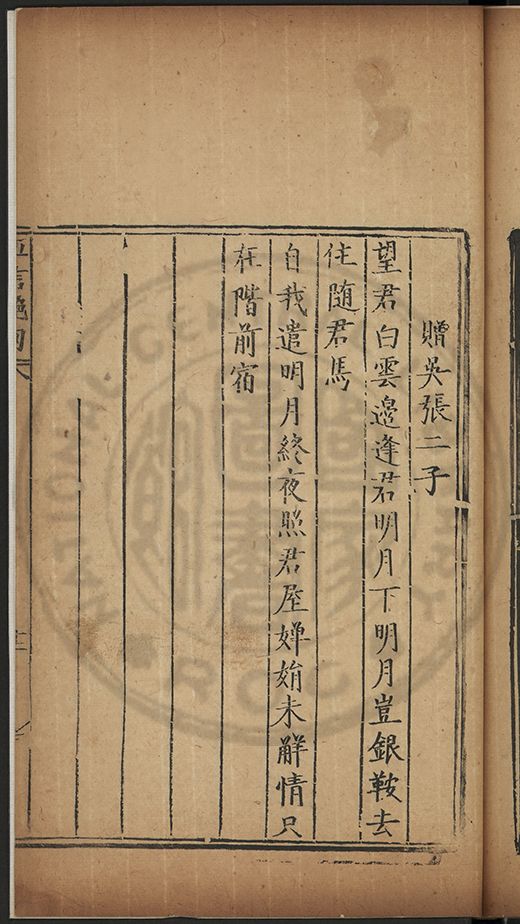 贈吳張二子
望君白雲邉逢君明月下明月豈銀鞍去
住隨君馬
自我遣明月終夜照君屋嬋娟未解情只
在階前宿
五言絶句